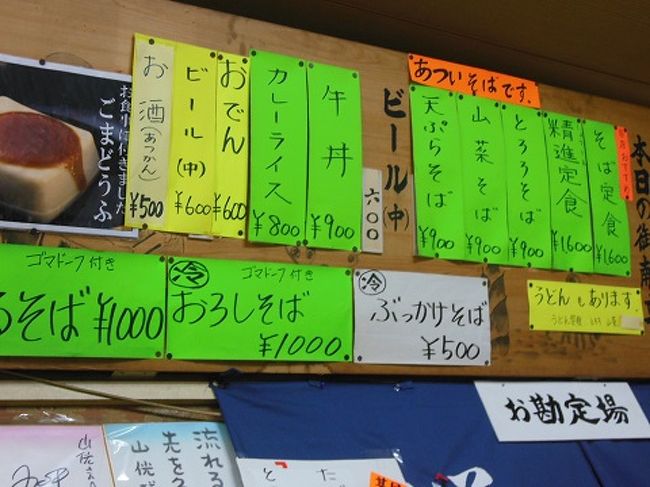 あついそばです。
本日の御献立
そば定食
¥1600
精進定食
¥1600
とろろそば
¥900
山菜そば
¥900
天ぷらそば
¥900
ビール(中)
六〇〇
牛丼
¥900
カレーライス
¥800
おでん
¥600
ビール(中)
¥600
お酒(あつかん)
¥500
お食事に付きました
ごまどうふ
ゴマドーフ付き
るそば ¥1000
冷
ゴマドーフ付き
おろしそば
¥1000
冷
ぶっかけそば
¥500
うどんもあります。
お勘定場
流れる
先を
山